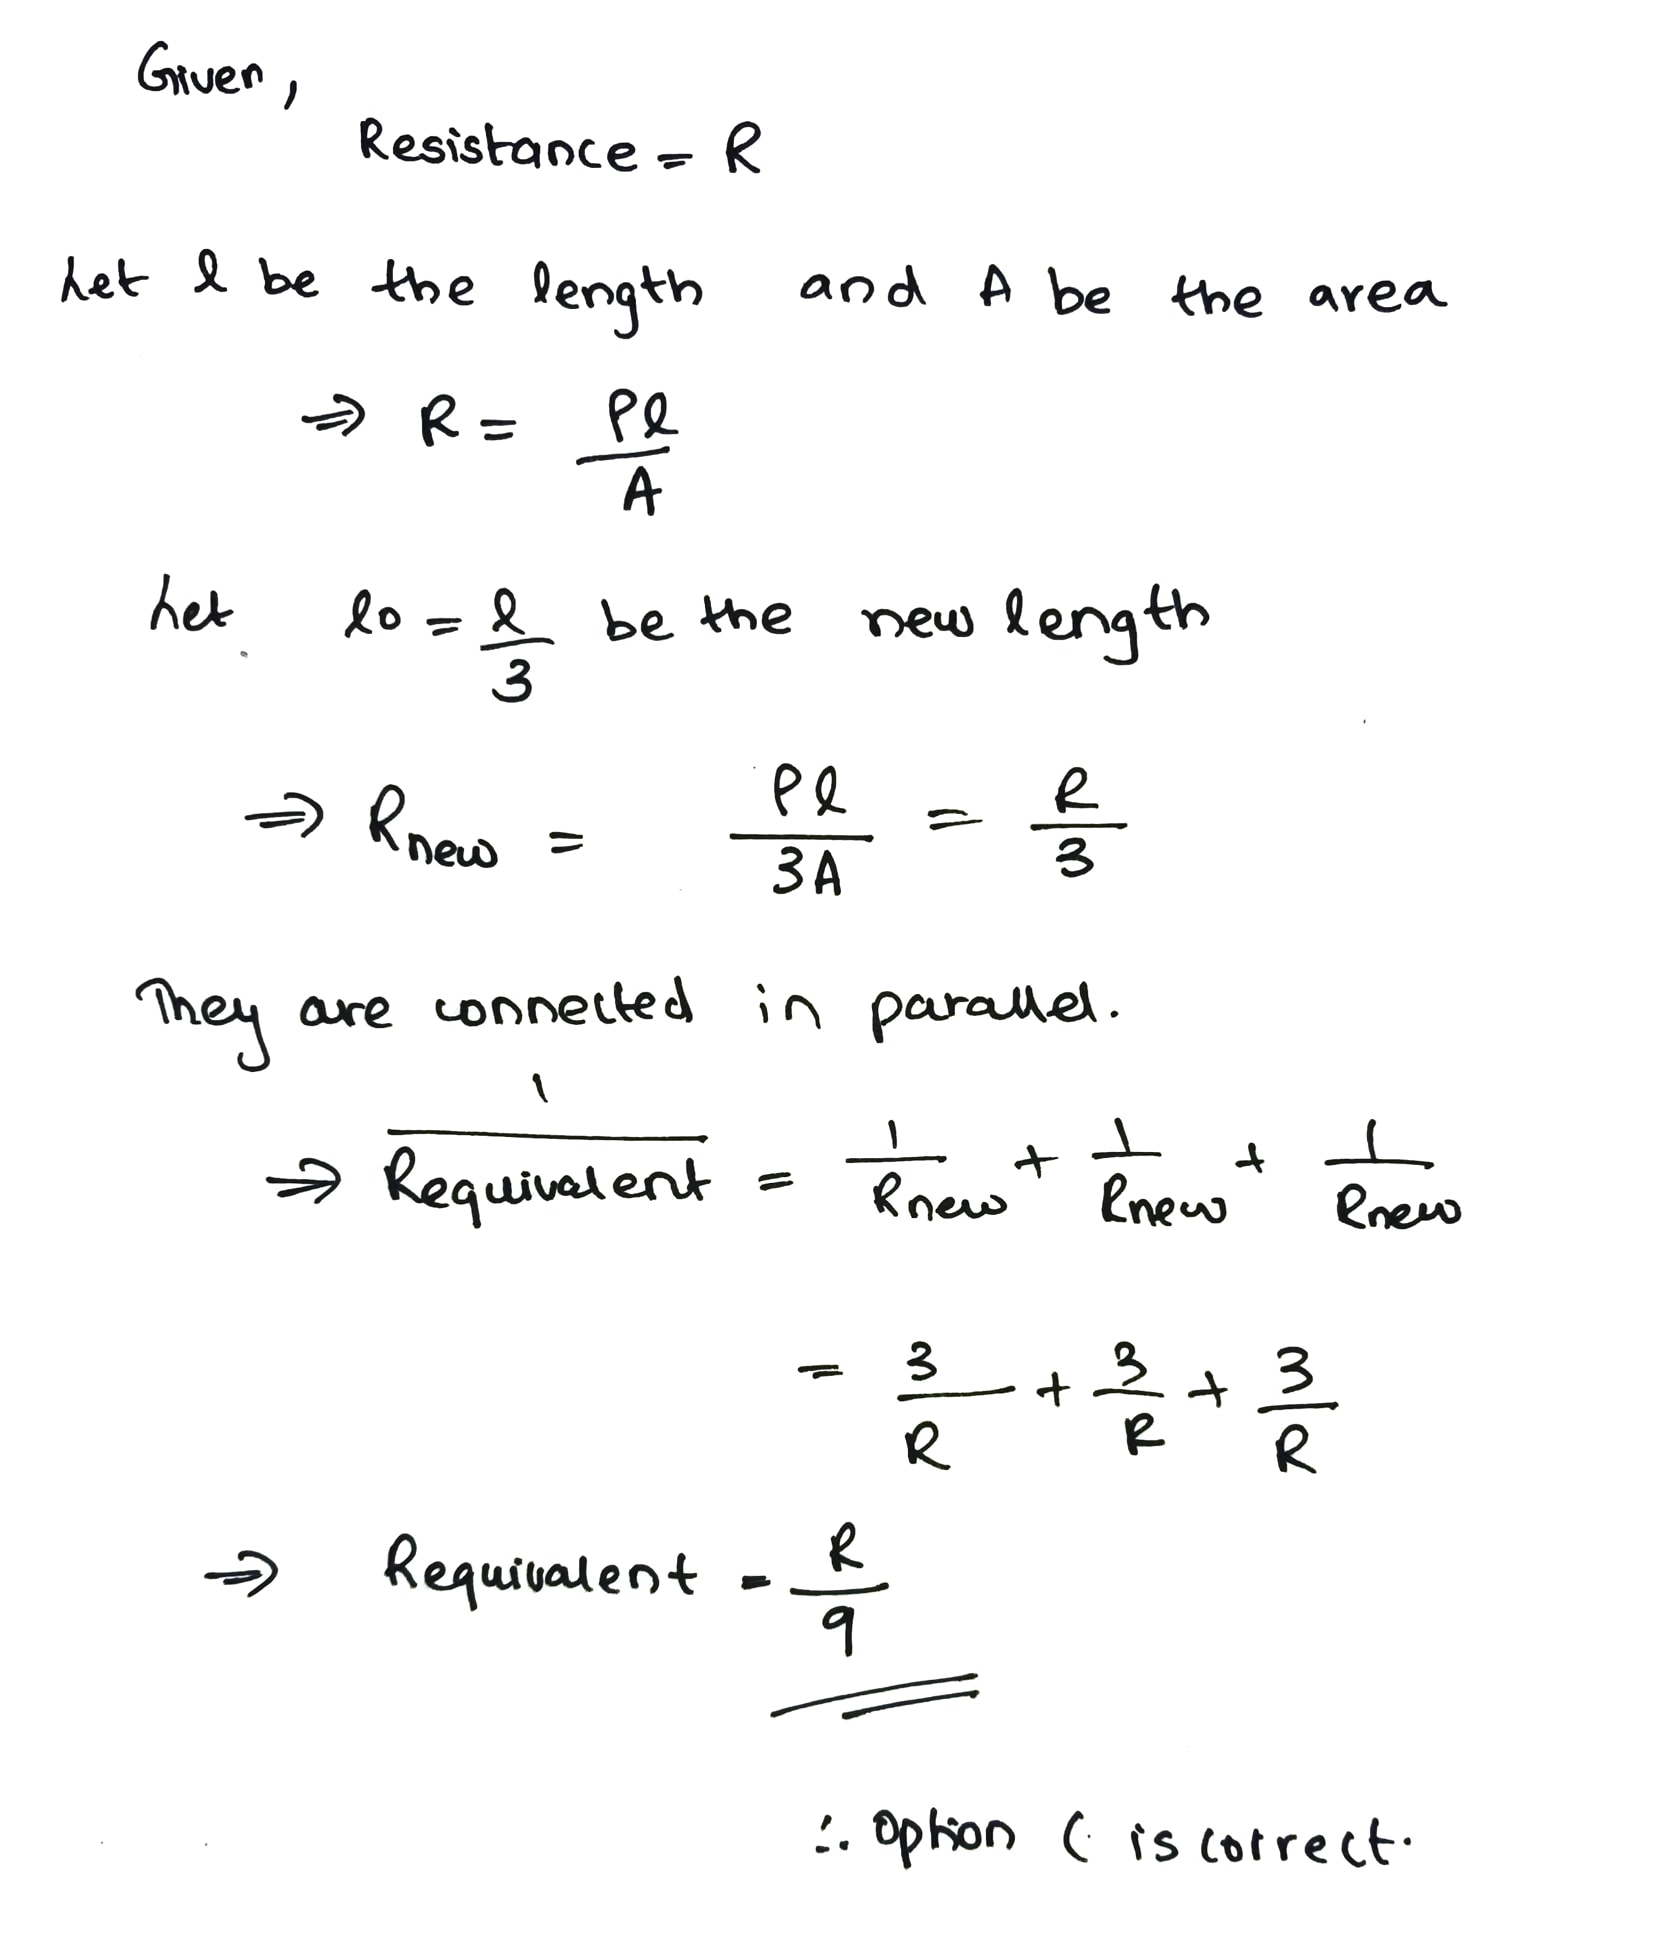 Given,
Resistance = R
Let l be the length and A be the area
⇒ R = ρl/A
Let l0 = l/3 be the new length
⇒ Rnew = ρl/3A = R/3
They are connected in parallel.
⇒ 1/Requivalent = 1/Rnew + 1/Rnew + 1/Rnew
= 3/R + 3/R + 3/R
⇒ Requivalent = R/9
∴ Option C is correct.